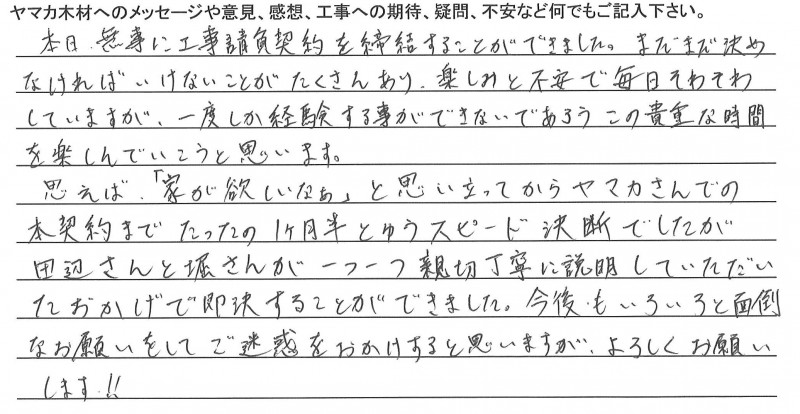 ヤマカ木材へのメッセージや意見、感想、工事への期待、疑問、不安など何でもご記入下さい。
本日、無事に工事請負契約を締結することができました。まだまだ決め
なければいけないことがたくさんあり、楽しみと不安で毎日そわそわ
していますが、一度しか経験する事ができないであろうこの貴重な時間
を楽しんでいこうと思います。
思えば、「家が欲しいなぁ」と思い立ってからヤマカさんでの
本契約までたったの1ヶ月半とゆうスピード決断でしたが
田辺さんと堀さんが一つ一つ親切丁寧に説明していただい
たおかげで即決することができました。今後もいろいろと面倒
なお願いをしてご迷惑をおかけすると思いますが、よろしくお願い
します!!